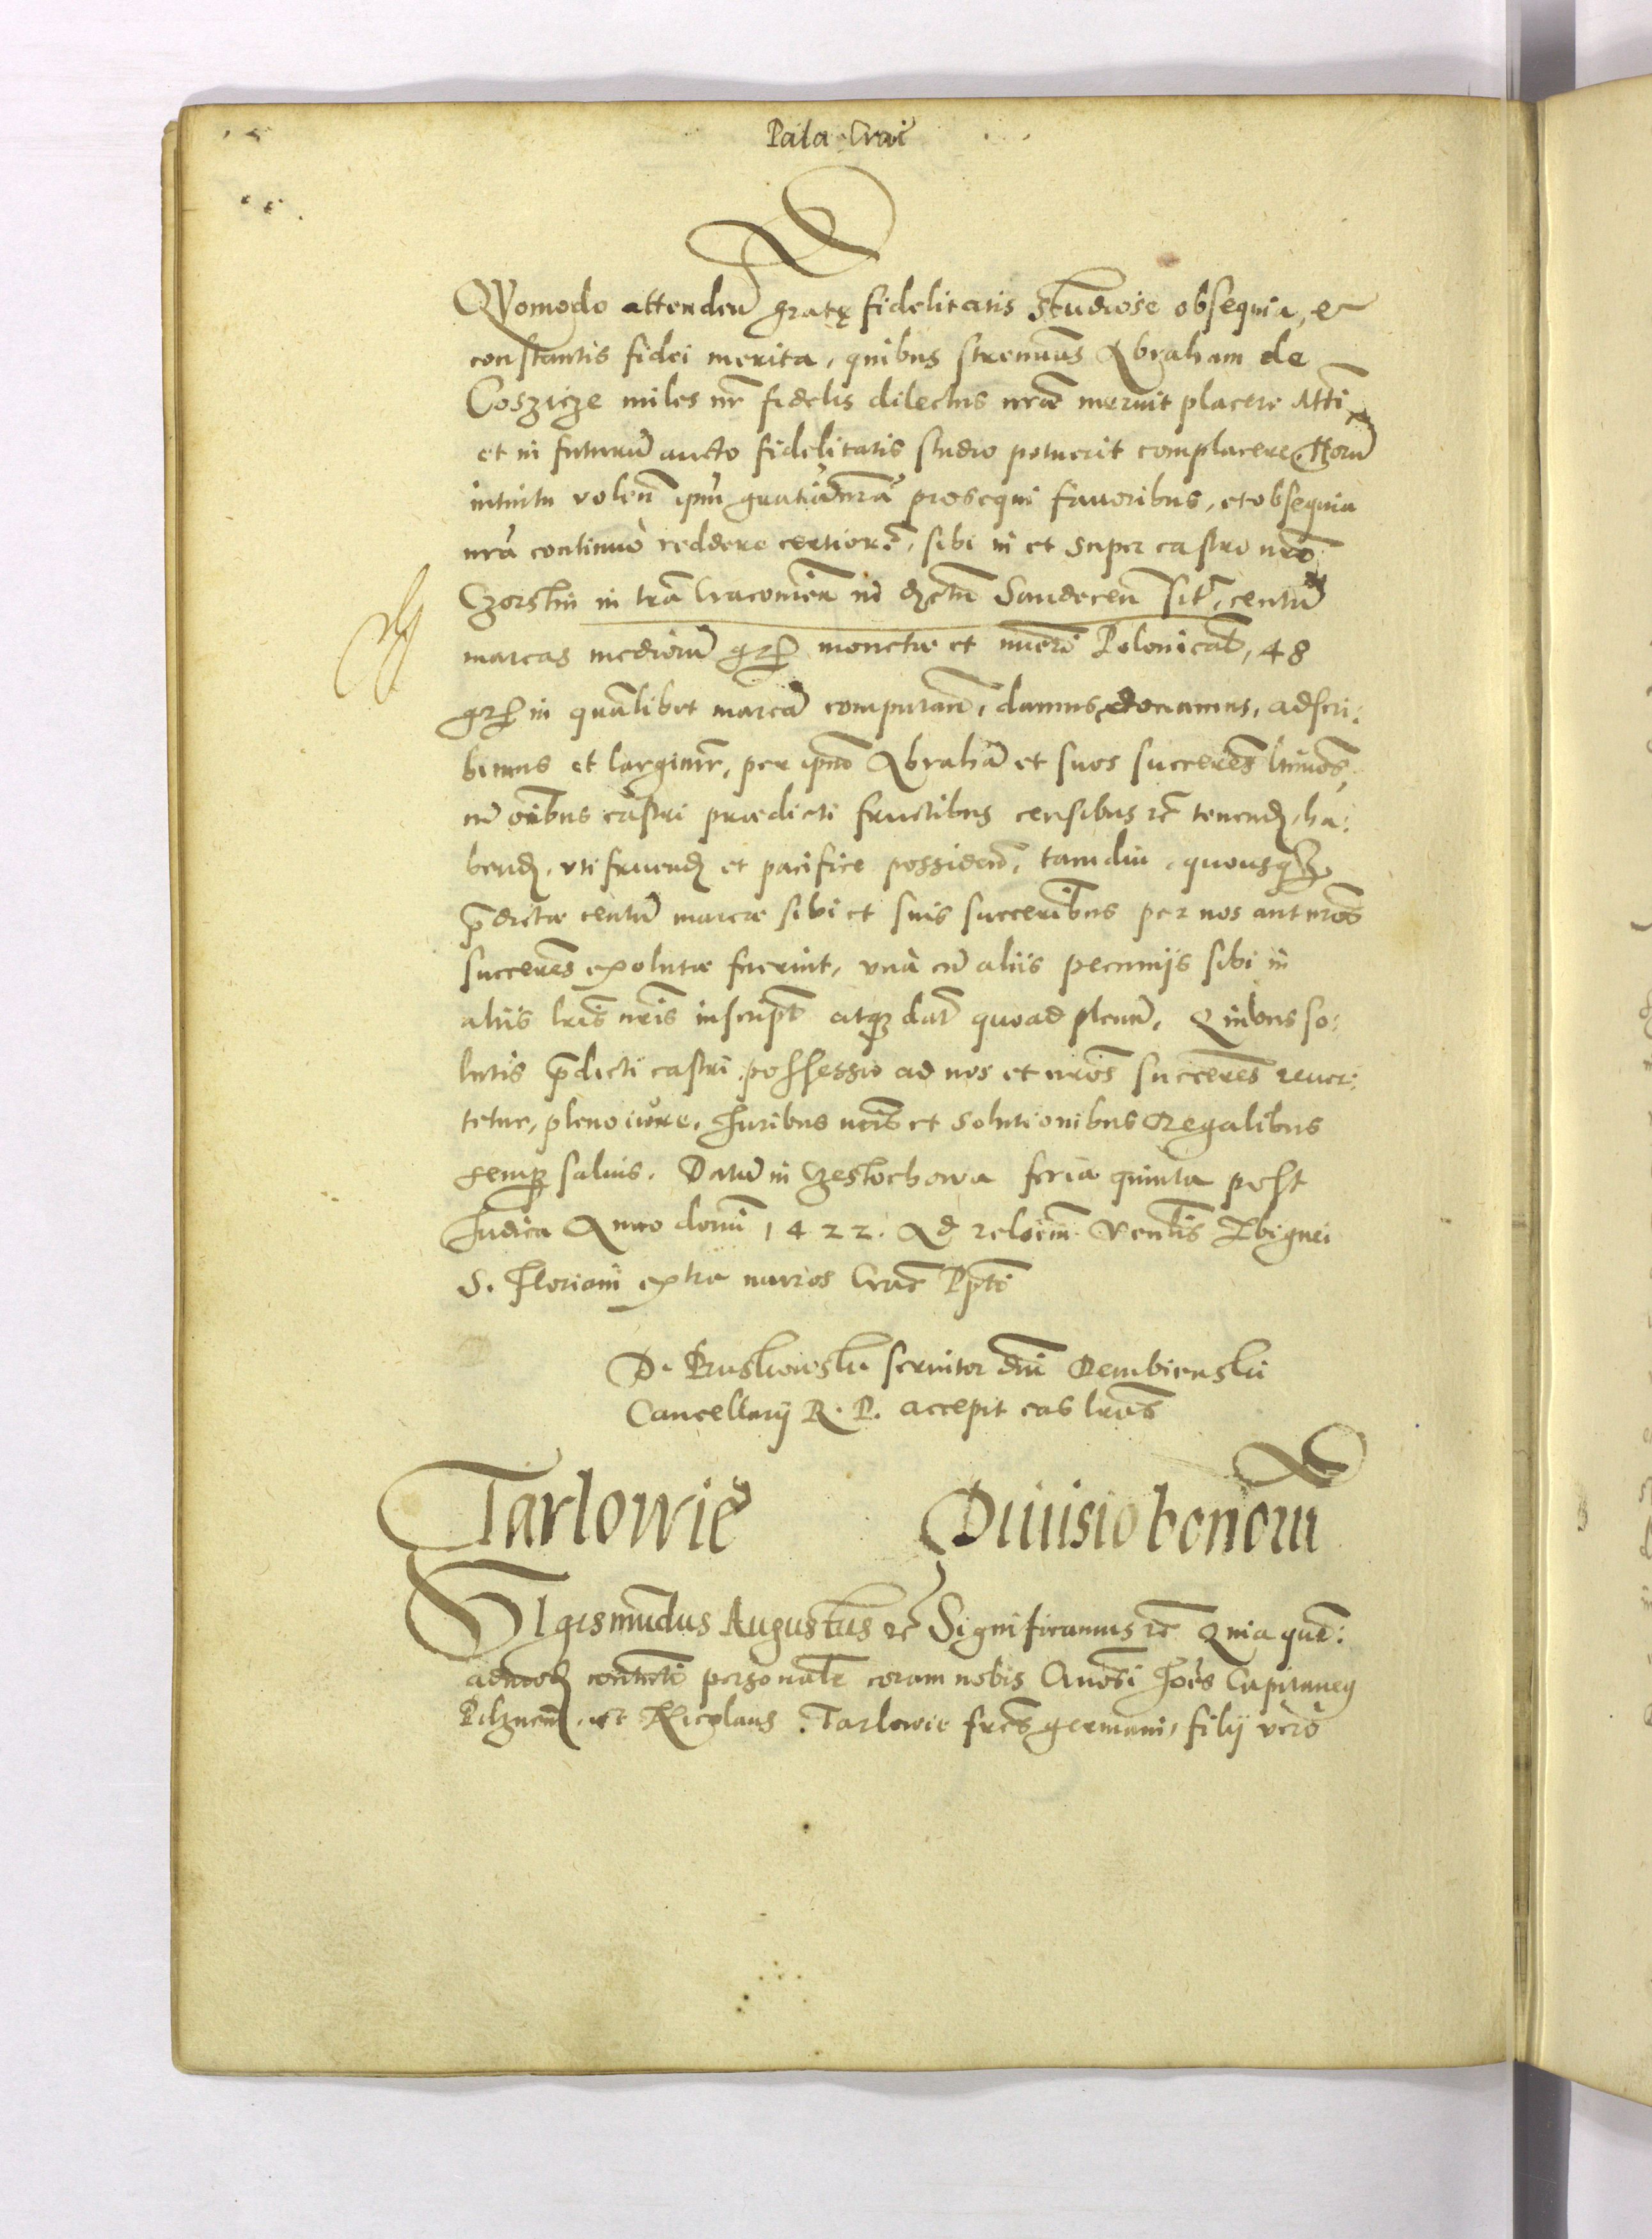 Pala. Crac̃
QVomodo attendeñ gratę fidelitatis studiose obsequia, et
constantis fidei merita, quibus strenuus Abraham de
Coszicze miles nr̃ fidelis dilectus nrãe meruit placere Mtti
et in futurũ aucto fidelitatis studio potuerit complacere. Horũ
intuitu voleñ ipm̃ gratia nrã prosequi fauoribus, et obsequia
nrã continuò reddere certiorẽ, sibi in et super castro nrõ
Czorstin in trã Cracovieñ in dctũ Sandeceñ sit̃, centũ
marcas mediorũ gr̃ monetæ et nũeri Polonicał, 48
gr̃ in quãlibet marcã computañ, damus, donamus, adscri:
bimus et largimr̃, per ipm̃ Abrahã et suos succerẽs ltimõs,
cũ oĩbus castri prædicti fructibus censibus etc̃ tenend, ha:
bend, vtifruend et pacifice possideñ, tamdiu, quousq3
p̃dictæ centũ marcæ sibi et suis succerĩbus per nos aut nrõs
succerẽs exolutæ fuerint, vnà cũ aliis pecunijs sibi in
aliis lrĩs nrĩs inscript̃ atq3 dat̃ quoad plenũ. Quibus so:
lutis p̃dicti castri possessio ad nos et nrõs succerẽs reuer:
tetur, pleno iure. Iuribus nrĩs et solutionibus Regalibus
semp̃ saluis. Datũ in Czestochowa feria quinta post
Iudica Anno domĩ 1422. Ad relõem̃ Venĩlis Zbignei
S. Floriani extra muros Crac̃ Ppti
D. Bruskowski seruitor dñi Dembienski
Cancellarij R. P. accepit eas lrãs
Tarlowiẽ Diuisio bonorũ
SIgismũdus Augustus etc̃ Significamus etc̃ Quia quẽ:
admod̃ personałr coram nobis Gñosi Ioẽs Capitaneq
Pilzneñ, et Nicolaus Tarlowie frẽs germani, filij vero